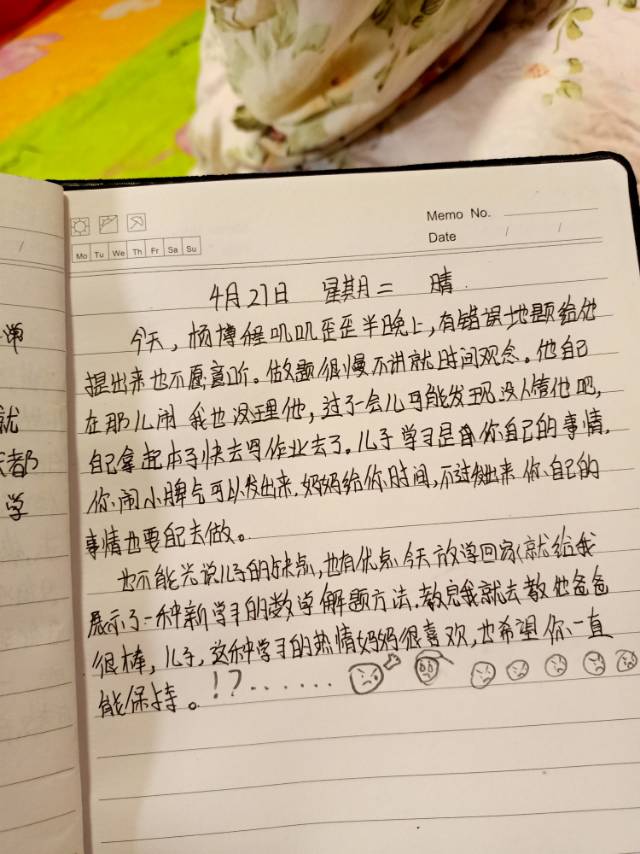 Memo No.
Date / /
Mo Tu We Th Fr Sa Su
4月27日 星期二 晴
今天，杨博程叽叽歪歪半晚上，有错误地题给他
提出来也不愿意听。做题很慢不讲就时间观念。他自己
在那儿闹 我也没理他，过了一会儿可能发现没人情他吧，
自己拿起本子快去写作业去了。儿子学习是你自己的事情，
你闹小脾气可以发出来，妈妈给你时间，不过发出来你自己的
事情也要配去做。
也不能光说儿子的缺点，也有优点，今天放学回家就给我
展示了一种新学习的数学解题方法，教完我就去教他爸爸
很棒，儿子，这种学习的热情妈妈很喜欢，也希望你一直
能保持。!?......
单
就
都
学